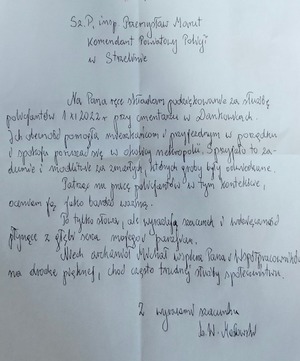 Sz. P. insp. Przemysław Marut
Komendant Powiatowy Policji
w Strzelinie
Na Pana ręce składam podziękowanie za służbę
policjantów 1 XI 2022 r. przy cmentarzu w Dankowicach.
Ich obecność pomogła mieszkańcom i przyjezdnym w porządku
i spokoju poruszać się w okolicy nekropolii. Sprzyjało to za-
dumie i modlitwie za zmarłych, których groby były odwiedzane.
Patrząc na pracę policjantów w tym kontekście,
oceniam ją jako bardzo ważną.
To tylko słowa, ale wyrażają szacunek i wdzięczność
płynące z głębi serca mojego i parafian.
Niech archanioł Michał wspiera Pana i Współpracowników
na drodze pięknej, choć często trudnej służby społeczeństwu.
Z wyrazami szacunku
ks. W.